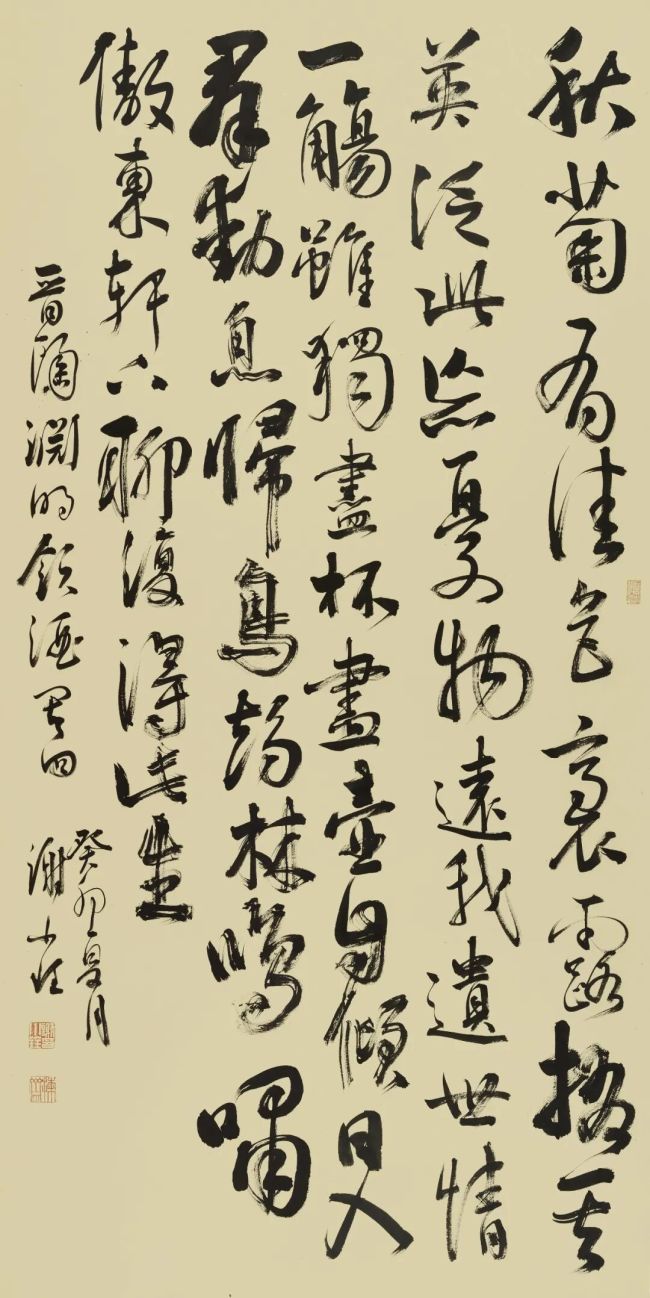 秋菊有佳色裛露掇其
英泛此忘憂物遠我遺世情
一觴雖獨盡杯盡壺自傾日入
羣動息歸鳥趨林鳴嘯
傲東軒下聊復得此生
晋陶淵明飲酒其四
癸卯夏月
謝小